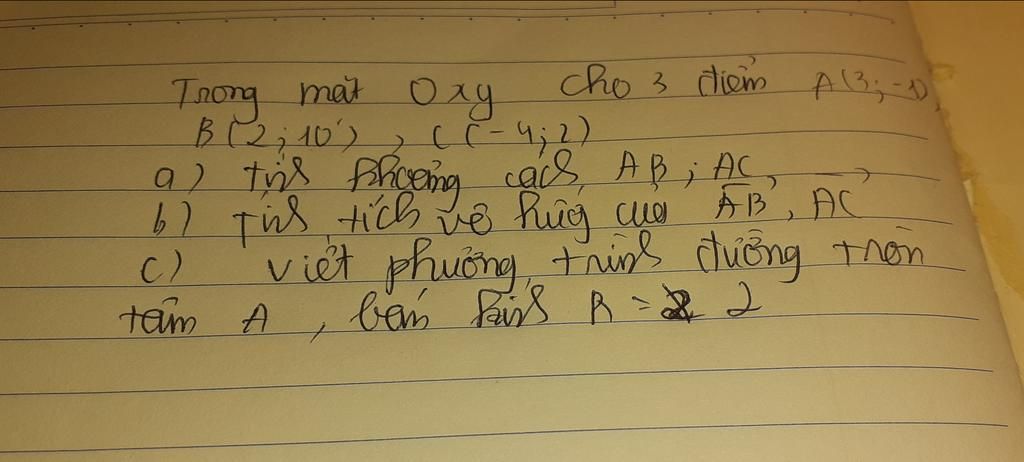 Trong mặt Oxy cho 3 điểm A(3;-1),
B(2;10), C(-4;2)
a) tính khoảng cách AB; AC
b) Tính tích vô hướng của AB, AC
c) viết phương trình đường tròn
tâm A, bán kính R = 2